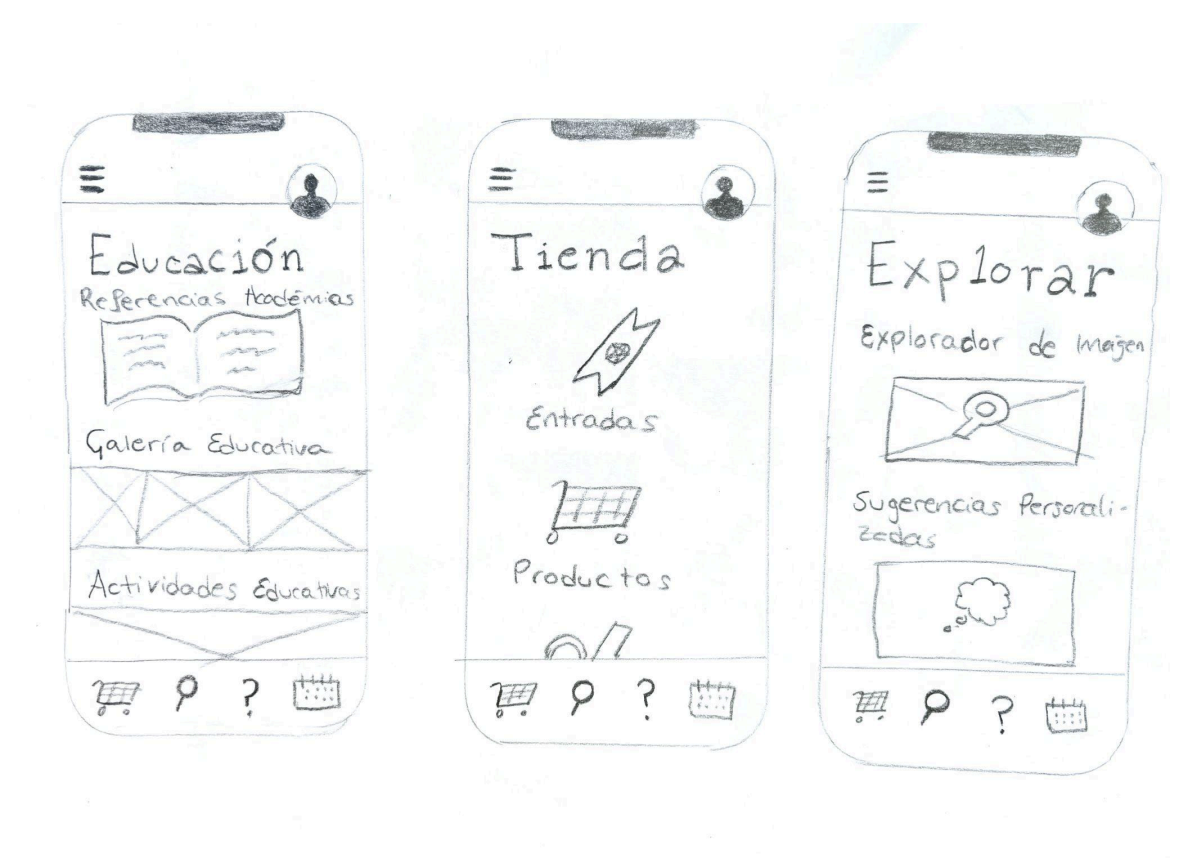 Educación
Referencias Académias
Galería Educativa
Actividades Educativas
?
Tienda
Entradas
Productos
?
Explorar
Explorador de Imagen
Sugerencias Personali-
zadas
?